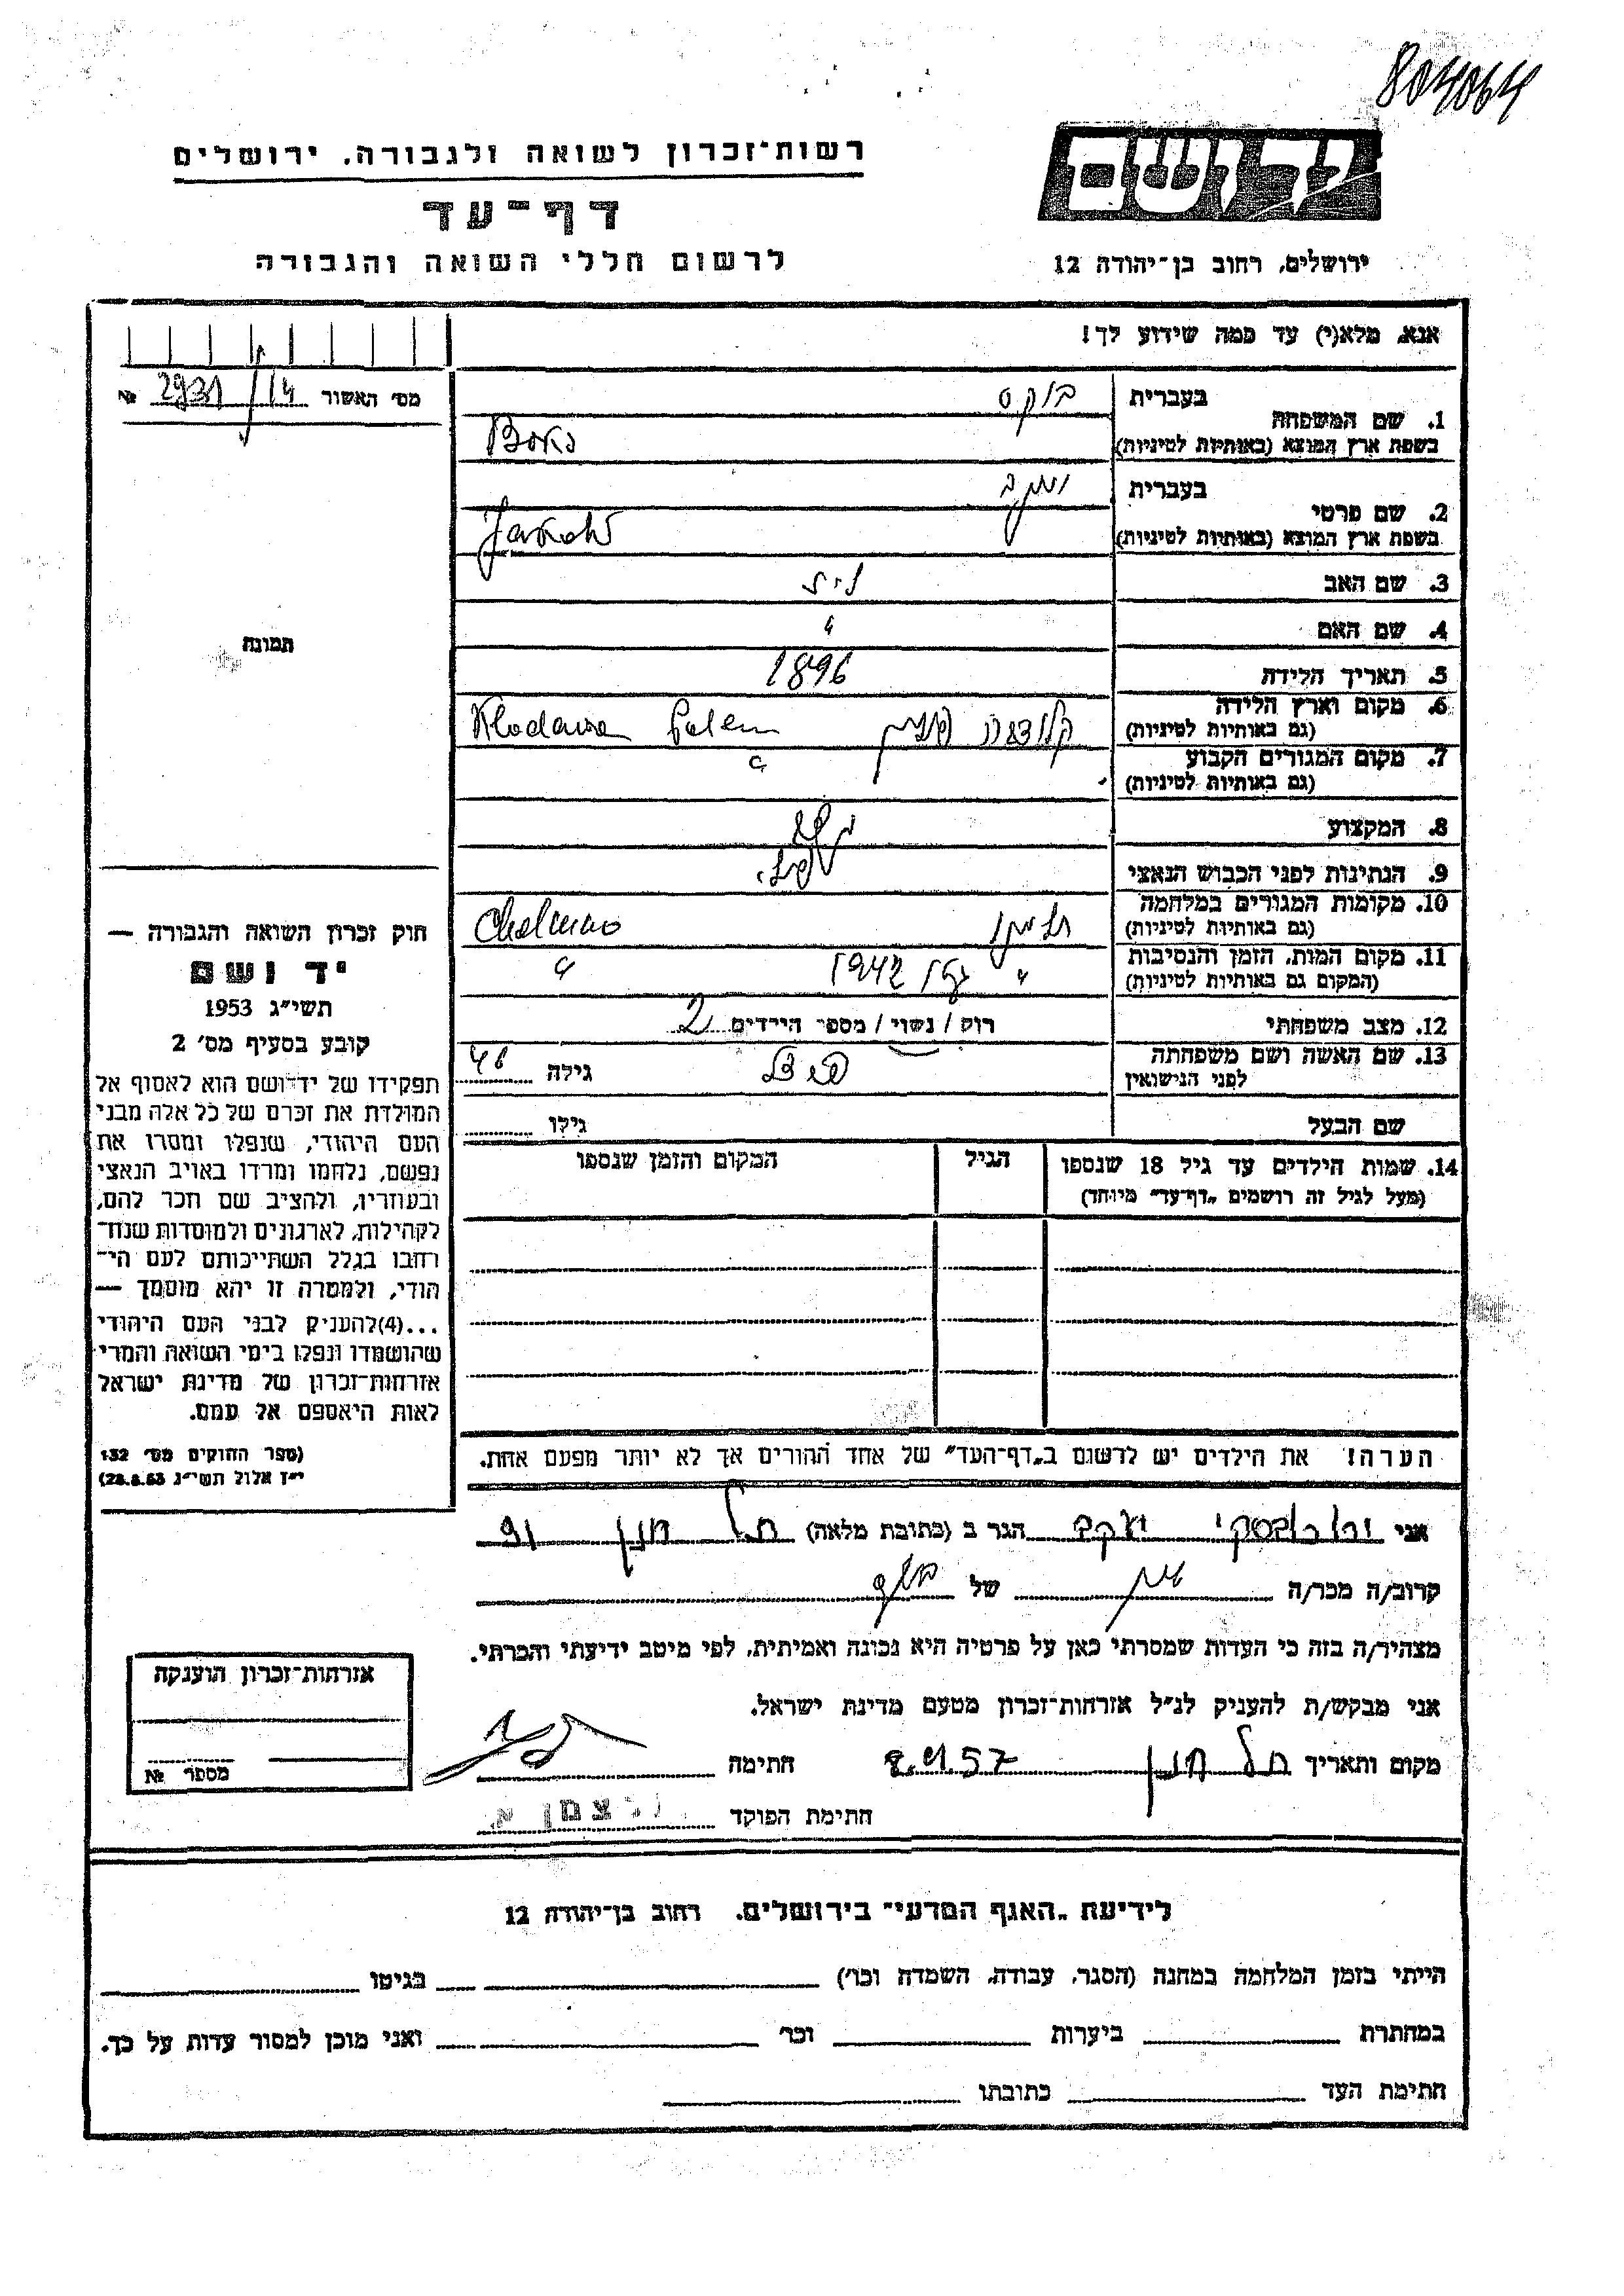 804064
רשות־זכרון לשואה ולגבורה, ירושלים
יד ושם
דף־עד
לרשום חללי השואה והגבורה
ירושלים, רחוב בן־יהודה 12
אנא, מלא(י) עד כמה שידוע לך!
מס׳ האשור 2931/14 №
1. שם המשפחה
בעברית בוקס
בשפת ארץ המוצא (באותיות לטיניות)
2. שם פרטי
בעברית יעקב
בשפת ארץ המוצא (באותיות לטיניות)
3. שם האב
4. שם האם
5. תאריך הלידה 1896
6. מקום וארץ הלידה
(גם באותיות לטיניות) קלודבה פולין Klodawa
7. מקום המגורים הקבוע
(גם באותיות לטיניות)
8. המקצוע
9. הנתינות לפני הכבוש הנאצי
10. מקומות המגורים במלחמה
(גם באותיות לטיניות) חלמנו Chelmno
11. מקום המות, הזמן והנסיבות
(המקום גם באותיות לטיניות) 1942
12. מצב משפחתי רוק / נשוי / מספר הילדים 2
13. שם האשה ושם משפחתה
לפני הנישואין
גילה 46
שם הבעל גילו
14. שמות הילדים עד גיל 18 שנספו
(מעל לגיל זה רושמים „דף־עד״ מיוחד)
הגיל
המקום והזמן שנספו
הערה! את הילדים יש לרשום ב„דף־העד״ של אחד ההורים אך לא יותר מפעם אחת.
תמונה
חוק זכרון השואה והגבורה —
יד ושם
תשי״ג 1953
קובע בסעיף מס׳ 2
תפקידו של יד־ושם הוא לאסוף אל
המולדת את זכרם של כל אלה מבני
העם היהודי, שנפלו ומסרו את
נפשם, נלחמו ומרדו באויב הנאצי
ובעוזריו, ולהציב שם וזכר להם,
לקהילות, לארגונים ולמוסדות שנח־
רבו בגלל השתייכותם לעם הי־
הודי, ולמטרה זו יהא מוסמך —
...(4)להעניק לבני העם היהודי
שהושמדו ונפלו בימי השואה והמרי
אזרחות־זכרון של מדינת ישראל
לאות היאספם אל עמם.
(ספר החוקים מס׳ 132
י״ז אלול תשי״ג 28.8.53)
אני יעקב הגר ב (כתובת מלאה) תל חנן
קרוב/ה מכר/ה של
מצהיר/ה בזה כי העדות שמסרתי כאן על פרטיה היא נכונה ואמיתית, לפי מיטב ידיעתי והכרתי.
אני מבקש/ת להעניק לנ״ל אזרחות־זכרון מטעם מדינת ישראל.
מקום ותאריך תל חנן חתימה
חתימת הפוקד
אזרחות־זכרון הוענקה
מספר №
לידיעת „האגף המדעי״ בירושלים, רחוב בן־יהודה 12
הייתי בזמן המלחמה במחנה (הסגר, עבודה, השמדה וכו׳) בגיטו
במחתרת ביערות וכו׳ ואני מוכן למסור עדות על כך.
חתימת העד כתובתו